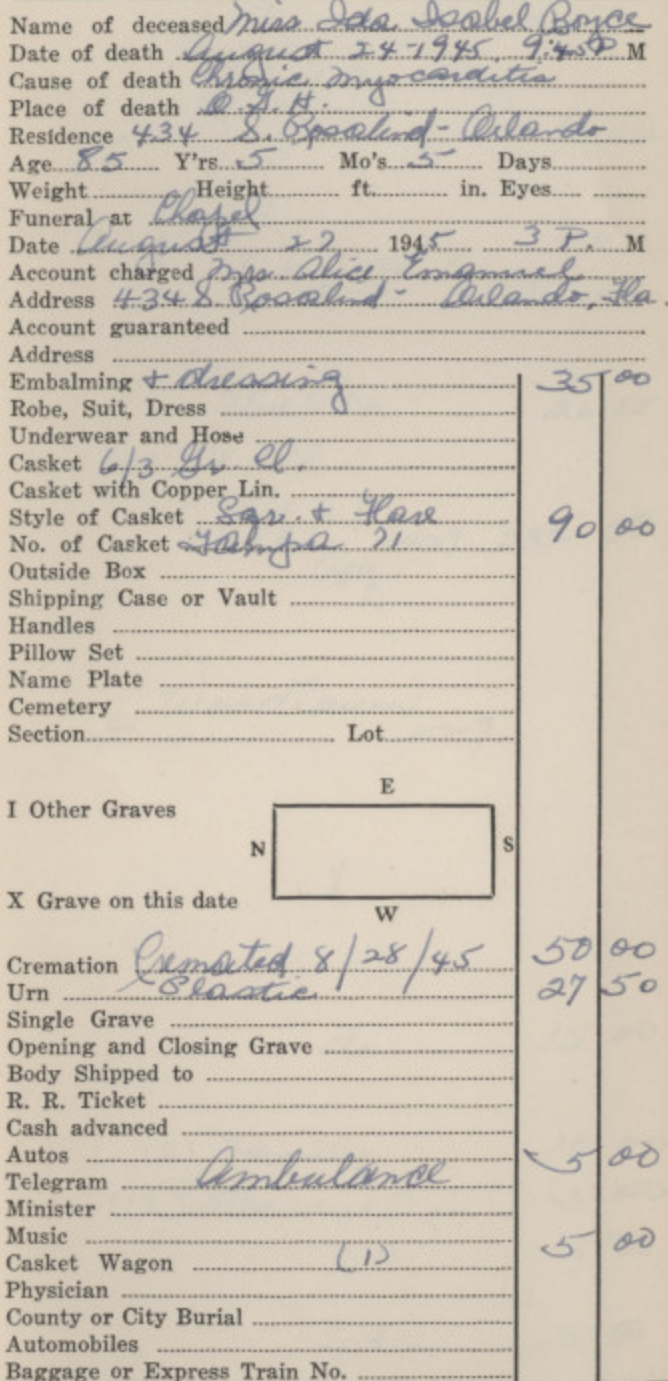 Name of deceased Miss Ida Isabel Boyce
Date of death August 24-1945 9:45 P M
Cause of death Chronic myocarditis
Place of death O. G. H.
Residence 434 S. Rosalind - Orlando
Age 85 Y'rs 5 Mo's 5 Days
Weight Height ft. in. Eyes
Funeral at Chapel
Date August 27 1945 3 P. M
Account charged Mrs Alice Emanuel
Address 434 S Rosalind - Orlando, Fla.
Account guaranteed
Address
Embalming + dressing 35 00
Robe, Suit, Dress
Underwear and Hose
Casket 6/3 Gr. Cl.
Casket with Copper Lin.
Style of Casket Sqr. + Flare 90 00
No. of Casket Tampa 71
Outside Box
Shipping Case or Vault
Handles
Pillow Set
Name Plate
Cemetery
Section Lot
E
I Other Graves
N S
X Grave on this date
W
Cremation Cremated 8/28/45 50 00
Urn Plastic 27 50
Single Grave
Opening and Closing Grave
Body Shipped to
R. R. Ticket
Cash advanced
Autos 5 00
Telegram Ambulance
Minister
Music 5 00
Casket Wagon (1)
Physician
County or City Burial
Automobiles
Baggage or Express Train No.